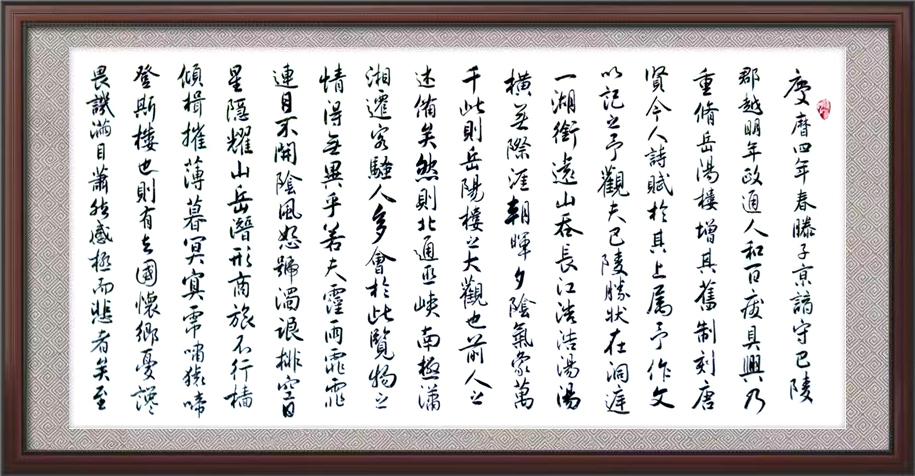 慶曆四年春滕子京謫守巴陵
郡越明年政通人和百廢具興乃
重脩岳陽樓增其舊制刻唐
賢今人詩賦於其上属予作文
以記之予觀夫巴陵勝狀在洞庭
一湖銜遠山吞長江浩浩湯湯
橫無際涯朝暉夕陰氣象萬
千此則岳陽樓之大觀也前人之
述備矣然則北通巫峽南極瀟
湘遷客騷人多會於此覽物之
情得無異乎若夫霪雨霏霏
連月不開陰風怒號濁浪排空日
星隱耀山岳潛形商旅不行檣
傾楫摧薄暮冥冥虎嘯猿啼
登斯樓也則有去國懷鄉憂讒
畏譏滿目蕭然感極而悲者矣至